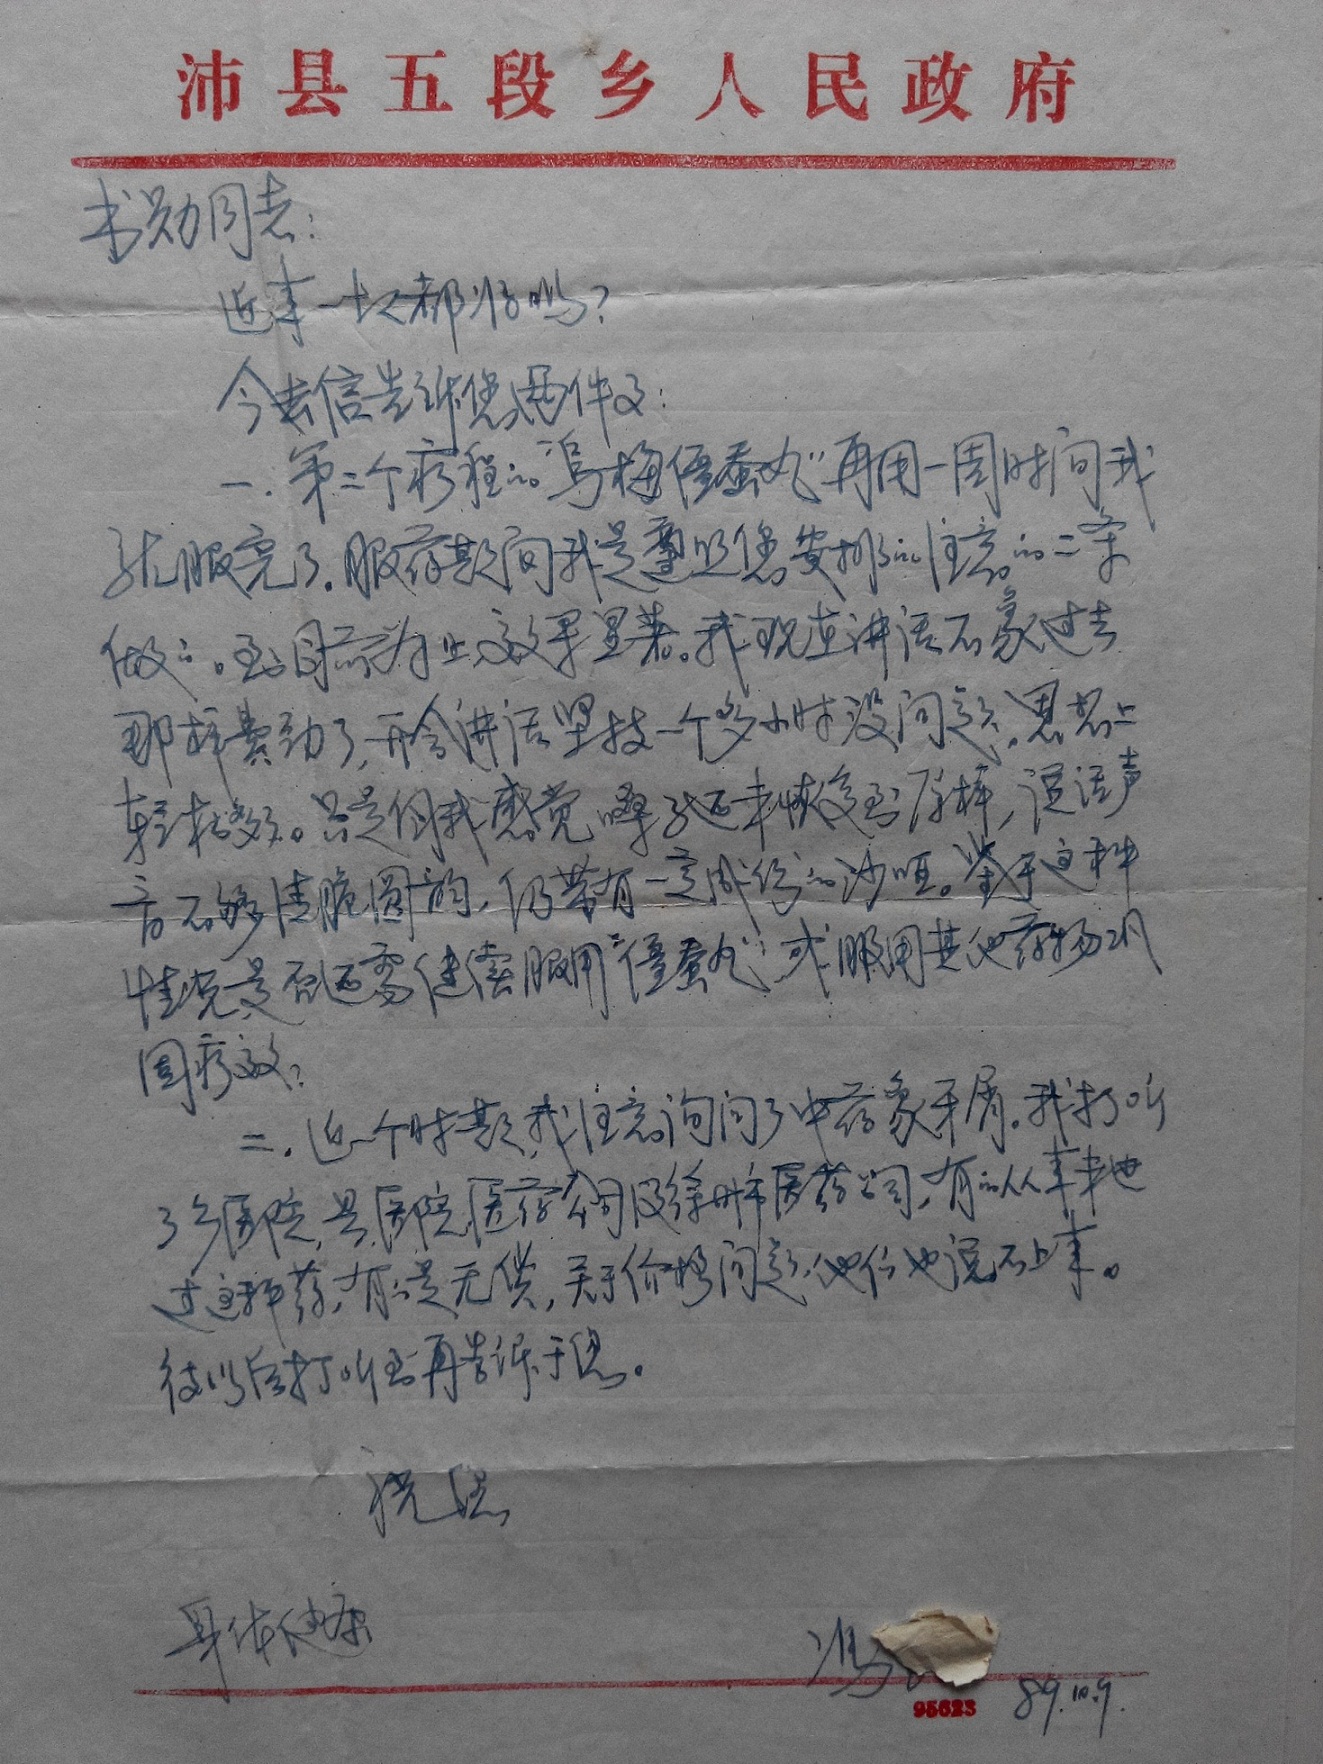 沛县五段乡人民政府
书勋同志：
近来一切都好吗？
今去信告诉您两件事：
一、第二个疗程的"乌梅僵蚕丸"再用一周时间我
就服完了。服药期间我是遵照您安排的注意的二条
做的。到目前为止效果显著。我现在讲话不象过去
那样费劲了，开会讲话坚持一个多小时没问题，思想上
轻松多了。只是自我感觉嗓子还未恢复到原样，说话声
音不够清脆圆韵，仍带有一定成份的沙哑。鉴于这种
情况是否还需继续服用"僵蚕丸"或服用其他药物巩
固疗效？
二、近一个时期，我注意询问了中药象牙屑。我打听
了乡医院，县医院，医药公司及徐州市医药公司，有的从来未进
过这种药，有的是无货，关于价格问题他们也说不上来。
待以后打听到再告诉于您。
祝您
身体健康
冯
89.10.9.
95623